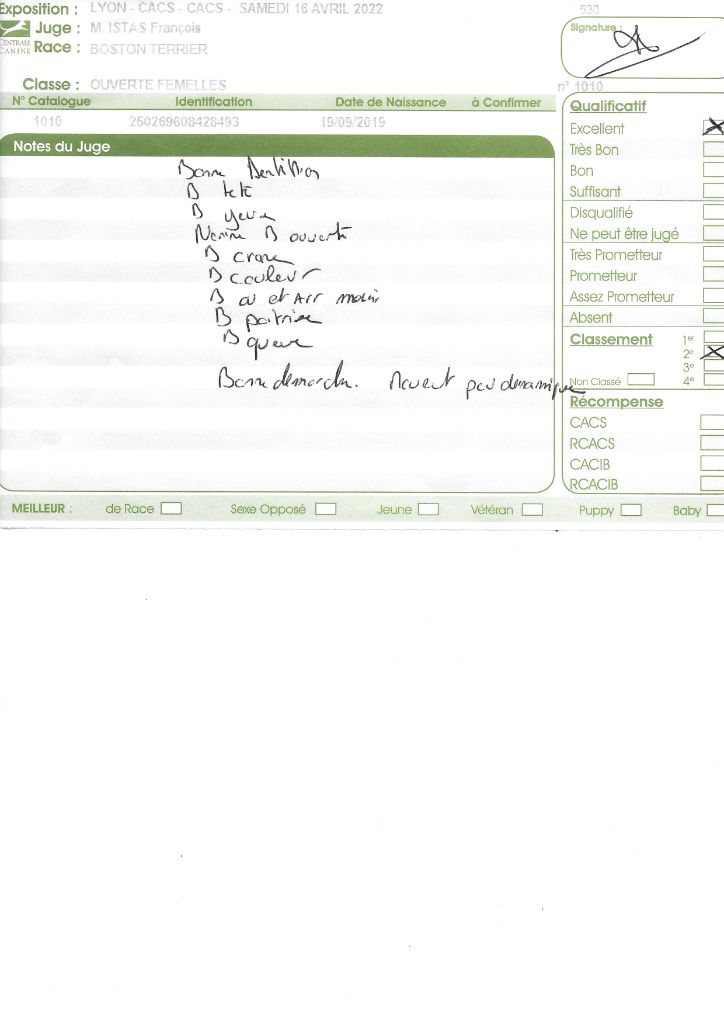 Exposition : LYON - CACS - CACS - SAMEDI 16 AVRIL 2022
530
Juge : M. ISTAS François
Signature :
CENTRALE CANINE
Race : BOSTON TERRIER
Classe : OUVERTE FEMELLES
n° 1010
N° Catalogue Identification Date de Naissance à Confirmer
1010 250269608428493 19/09/2019
Notes du Juge
Bonne Dentition
B tete
B yeux
Narine B ouverte
B crane
B couleur
B av et Arr main
B poitrine
B queue
Bonne demarche. Mouvent peu dynamique
Qualificatif
Excellent
Très Bon
Bon
Suffisant
Disqualifié
Ne peut être jugé
Très Prometteur
Prometteur
Assez Prometteur
Absent
Classement 1er
2e
3e
Non Classé 4e
Récompense
CACS
RCACS
CACIB
RCACIB
MEILLEUR : de Race Sexe Opposé Jeune Vétéran Puppy Baby